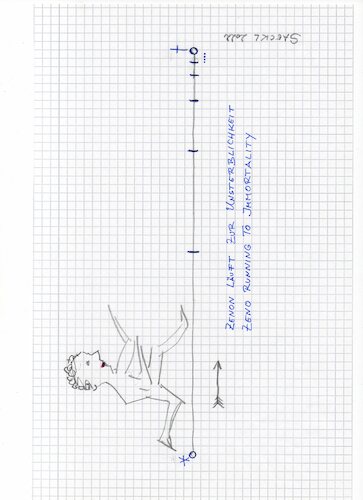 ZENON LÄUFT ZUR UNSTERBLICHKEIT
ZENO RUNNING TO IMMORTALITY
STOCKL 2022